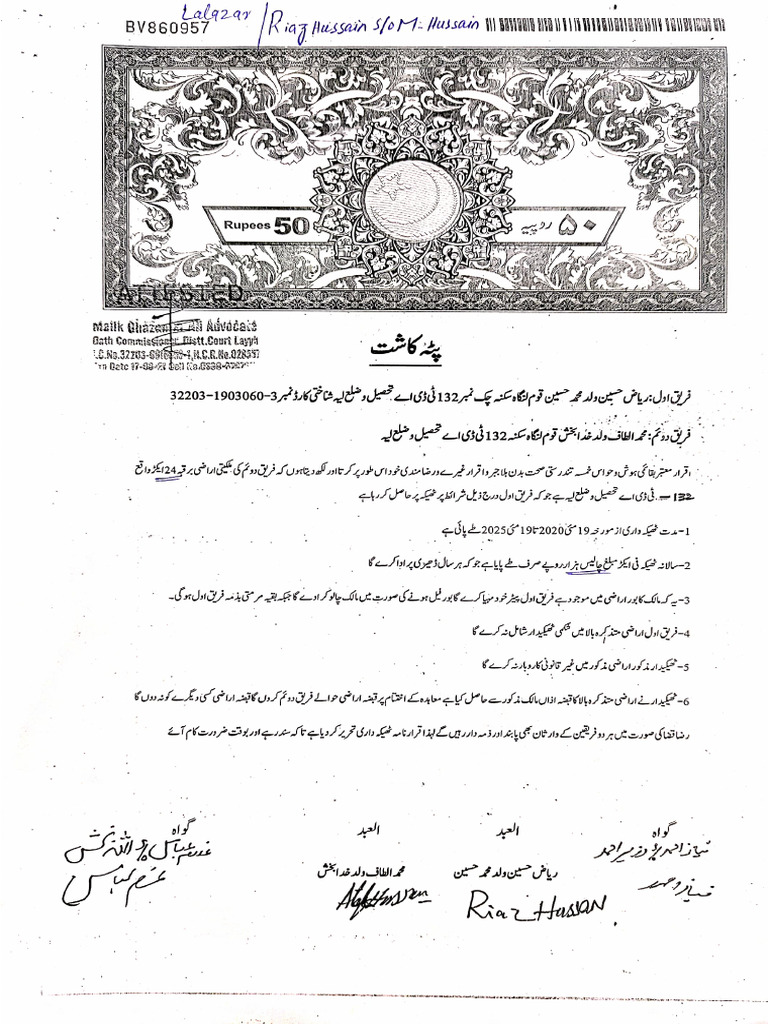 BV860957 Lalazar / Riaz Hussain S/o M. Hussain
Rupees 50 ۵۰ روپیہ
ATTESTED
Malik Ghazanfar Ali Advocate
Oath Commissioner Distt. Court Layyah
پٹہ کاشت
فریق اول: ریاض حسین ولد محمد حسین قوم لنگاہ سکنہ چک نمبر 132 ٹی ڈی اے تحصیل و ضلع لیہ شناختی کارڈ نمبر 3-1903060-32203
فریق دوئم: محمد الطاف ولد خدا بخش قوم لنگاہ سکنہ 132 ٹی ڈی اے تحصیل و ضلع لیہ
اقرار معتبر بقائمی ہوش و حواس خمسہ تندرستی صحت بدن بلا جبر واقرار غیرے ورضامندی خود اس طور پر کرتا اور لکھ دیتا ہوں کہ فریق دوئم کی ملکیتی اراضی برقبہ 24 ایکڑ واقع
132 ٹی ڈی اے تحصیل و ضلع لیہ ہے جو کہ فریق اول درج ذیل شرائط پر ٹھیکہ پر حاصل کر رہا ہے
1- مدت ٹھیکہ داری از مورخہ 19 مئی 2020 تا 19 مئی 2025 طے پائی ہے
2- سالانہ ٹھیکہ فی ایکڑ مبلغ چالیس ہزار روپے صرف طے پایا ہے جو کہ ہر سال ڈھیری پر ادا کرے گا
3- یہ کہ مالک کا بور اراضی میں موجود ہے فریق اول پیٹر خود مہیا کرے گا بور فیل ہونے کی صورت میں مالک چالو کرا دے گا جبکہ بقیہ مرمتی بذمہ فریق اول ہوگی۔
4- فریق اول اراضی متذکرہ بالا میں شکمی ٹھیکیدار شامل نہ کرے گا
5- ٹھیکیدار مذکور اراضی مذکور میں غیر قانونی کاروبار نہ کرے گا
6- ٹھیکیدار نے اراضی متذکرہ بالا کا قبضہ اذاں مالک مذکور سے حاصل کیا ہے معاہدہ کے اختتام پر قبضہ اراضی حوالے فریق دوئم کروں گا قبضہ اراضی کسی دیگرے کو نہ دوں گا
رضا قضا کی صورت میں ہر دو فریقین کے وارثان بھی پابند اور ذمہ دار رہیں گے لہذا اقرار نامہ ٹھیکہ داری تحریر کر دیا ہے تاکہ سند رہے اور بوقت ضرورت کام آئے
گواہ العبد العبد گواہ
ریاض حسین ولد محمد حسین محمد الطاف ولد خدا بخش
Riaz Hussan